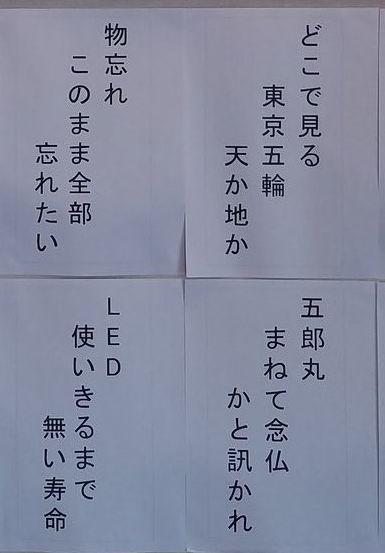 どこで見る
東京五輪
天か地か
物忘れ
このまま全部
忘れたい
五郎丸
まねて念仏
かと訊かれ
LED
使いきるまで
無い寿命